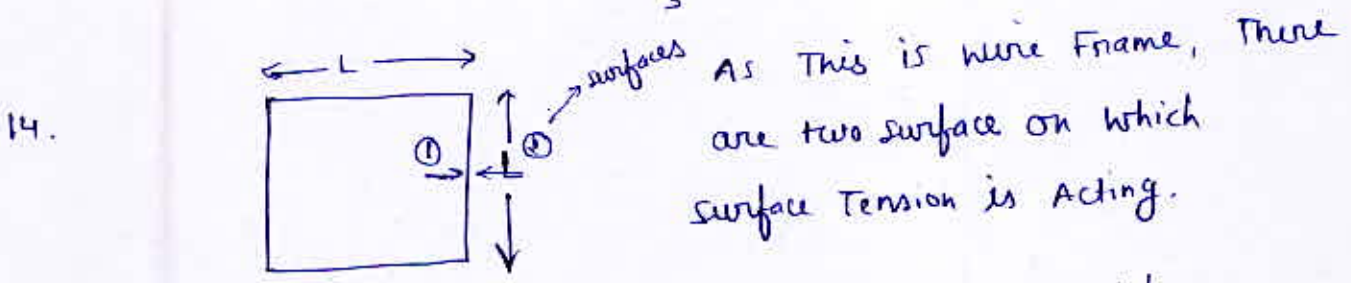 L
surfaces
As This is wire Frame, There
14.
① L ②
are two surface on which
surface Tension is Acting.